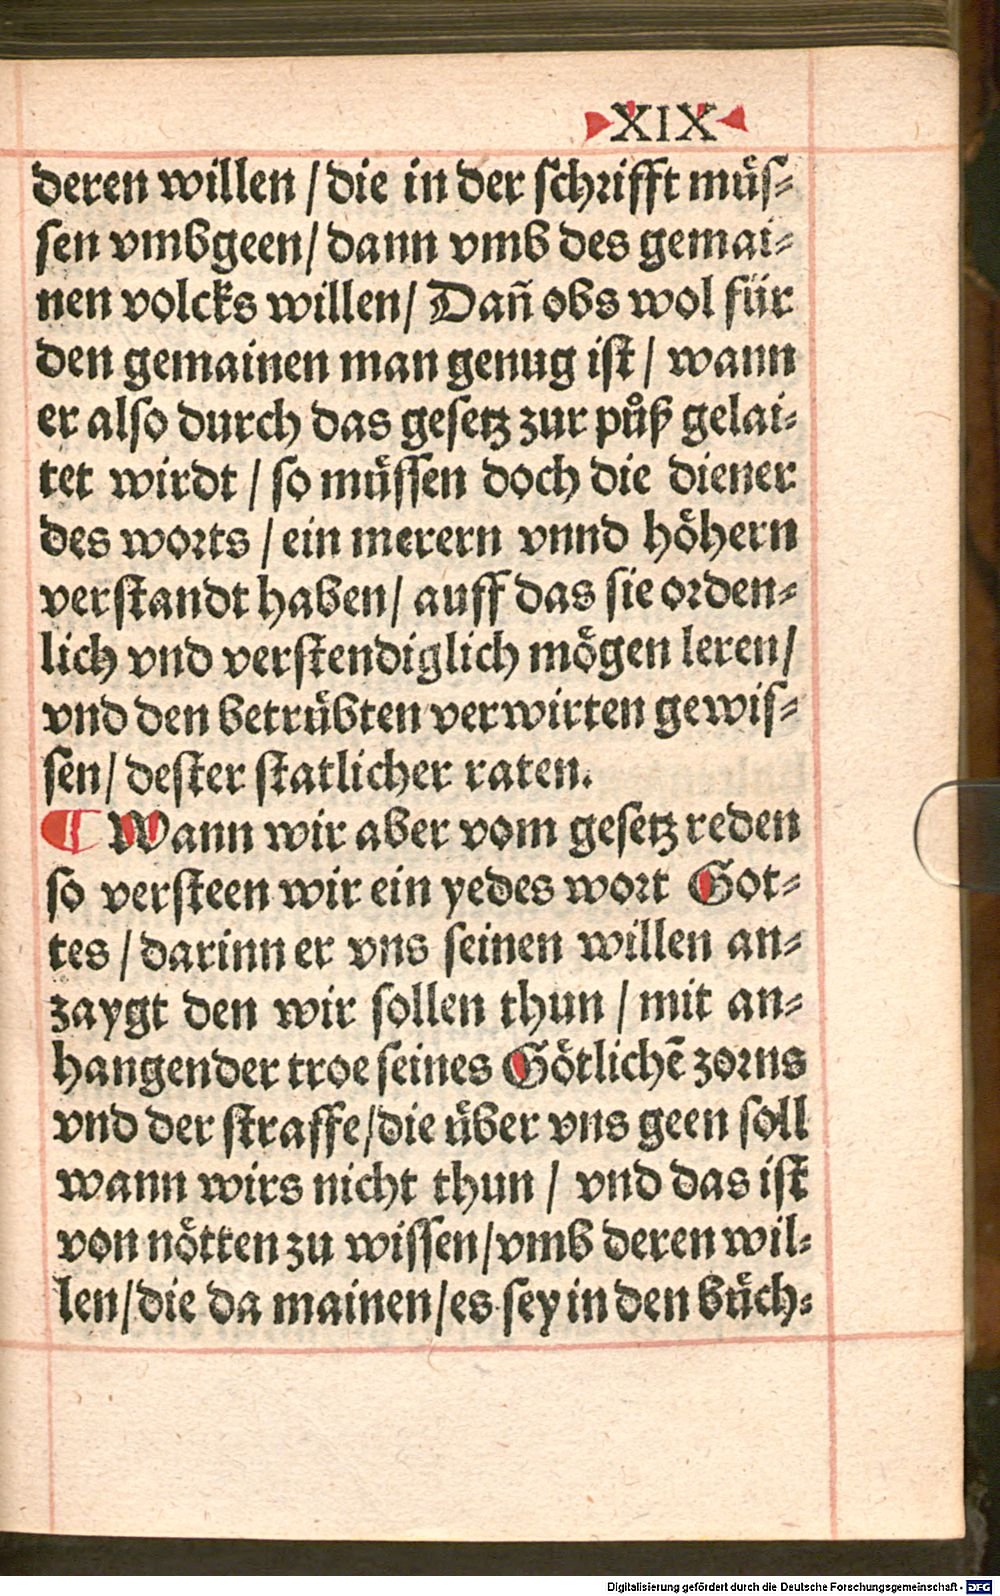 XIX
deren willen / die in der schrifft müs⸗
sen vmbgeen / dann vmb des gemai⸗
nen volcks willen / Dañ obs wol für
den gemainen man genug ist / wann
er also durch das gesetz zur půß gelai⸗
tet wirdt / so müssen doch die diener
des worts / ein merern vnnd höhern
verstandt haben / auff das sie orden⸗
lich vnd verstendiglich mögen leren /
vnd den betrübten verwirten gewis⸗
sen / dester statlicher raten.
¶ Wann wir aber vom gesetz reden
so versteen wir ein yedes wort Got⸗
tes / darinn er vns seinen willen an⸗
zaygt den wir sollen thun / mit an⸗
hangender troe seines Götlichē zorns
vnd der straffe / die über vns geen soll
wann wirs nicht thun / vnd das ist
von nötten zu wissen / vmb deren wil⸗
len / die da mainen / es sey in den büch⸗
Digitalisierung gefördert durch die Deutsche Forschungsgemeinschaft - DFG